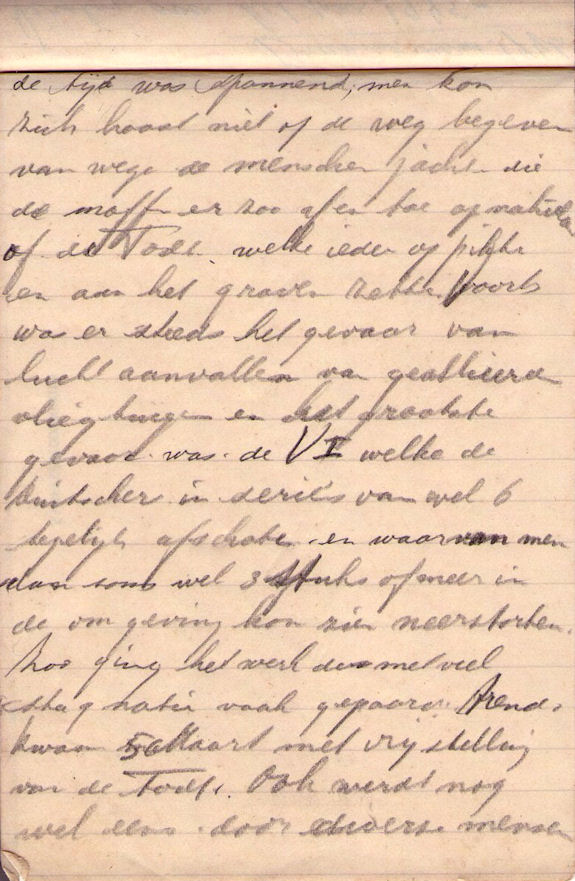 de tijd was spannend, men kon
zich haast niet op de weg begeven
van wege de menschen jacht die
de moffen er zoo af en toe op nahielden
of de Todt. welke ieder op pikte
en aan het graven zette. Voorts
was er steeds het gevaar van
lucht aanvallen van geallieerde
vliegtuigen en het grootste
gevaar was de V I welke de
duitschers in serie's van wel 6
tegelijk afschoten en waarvan men
dan soms wel 3 stuks of meer in
de om geving kon zien neerstorten.
Zoo ging het werk dus met veel
stag natie vaak gepaard.
kwam met vrijstelling
van de Todt. Ook werdt nog
wel eens door diverse mensen